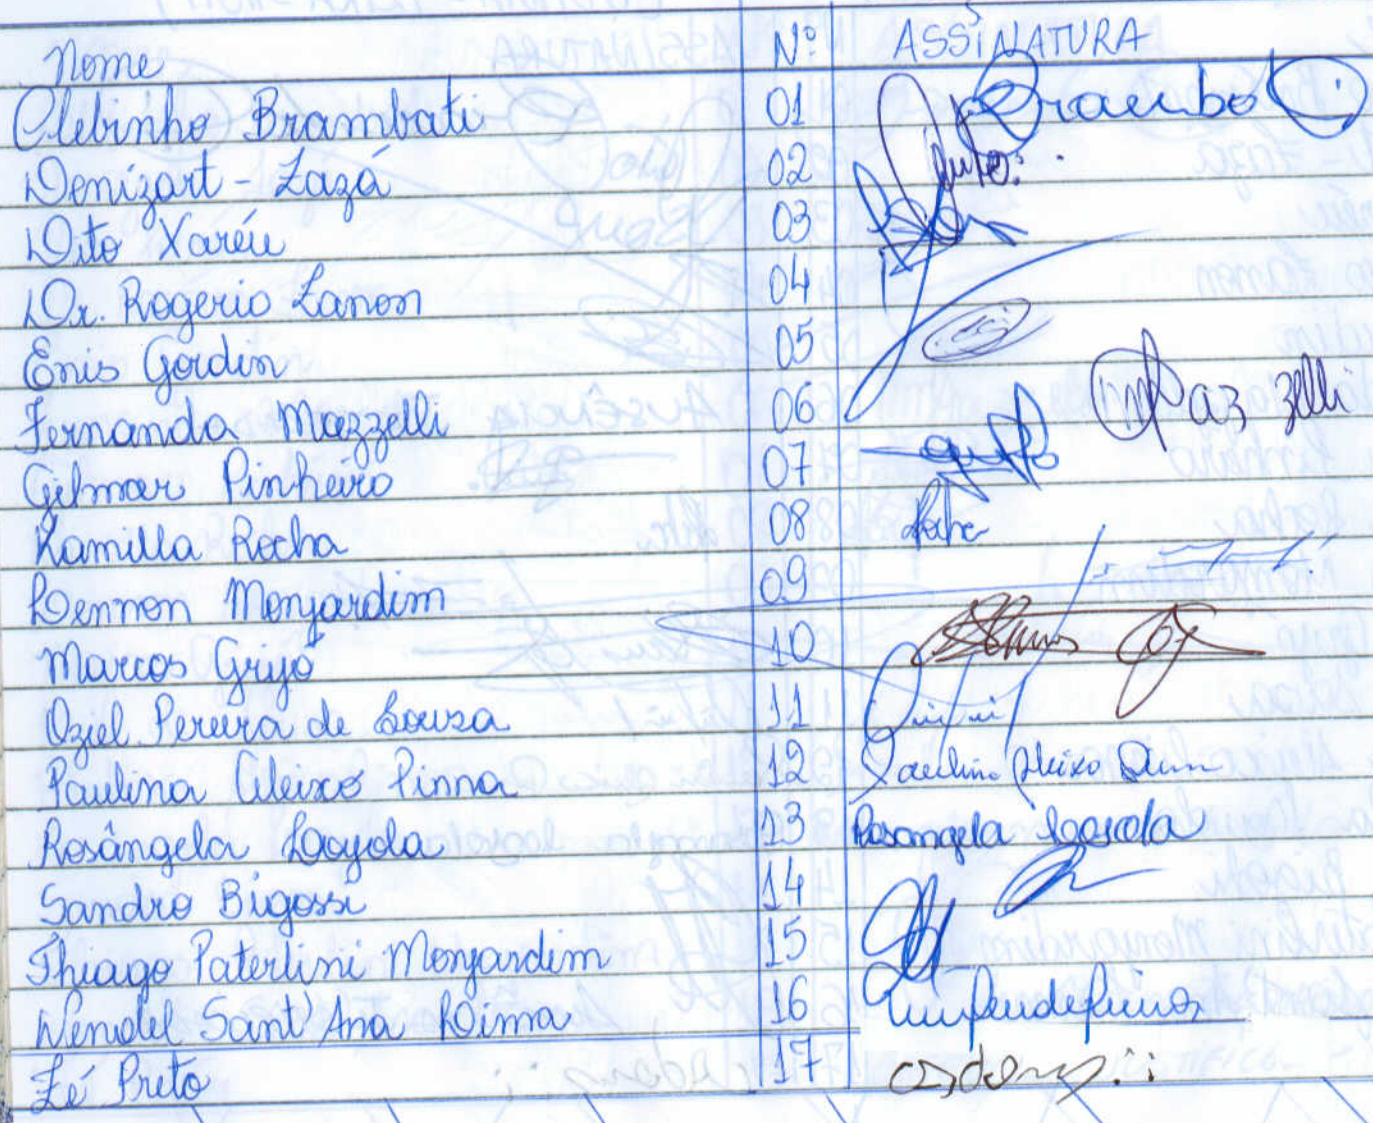 Nome Nº ASSINATURA
Clebinho Brambati 01
Denizart - Zazá 02
Dito Xaréu 03
Dr. Rogerio Zanon 04
Enis Gordin 05
Fernanda Mazzelli 06 Mazzelli
Gilmar Pinheiro 07
Kamilla Rocha 08
Lennon Monjardim 09
Marcos Grijó 10
Oziel Pereira de Souza 11
Paulina Aleixo Pinna 12 Paulina Aleixo
Rosângela Loyola 13 Rosangela Loyola
Sandro Bigossi 14
Thiago Paterlini Monjardim 15
Wendel Sant'Ana Lima 16
Zé Preto 17